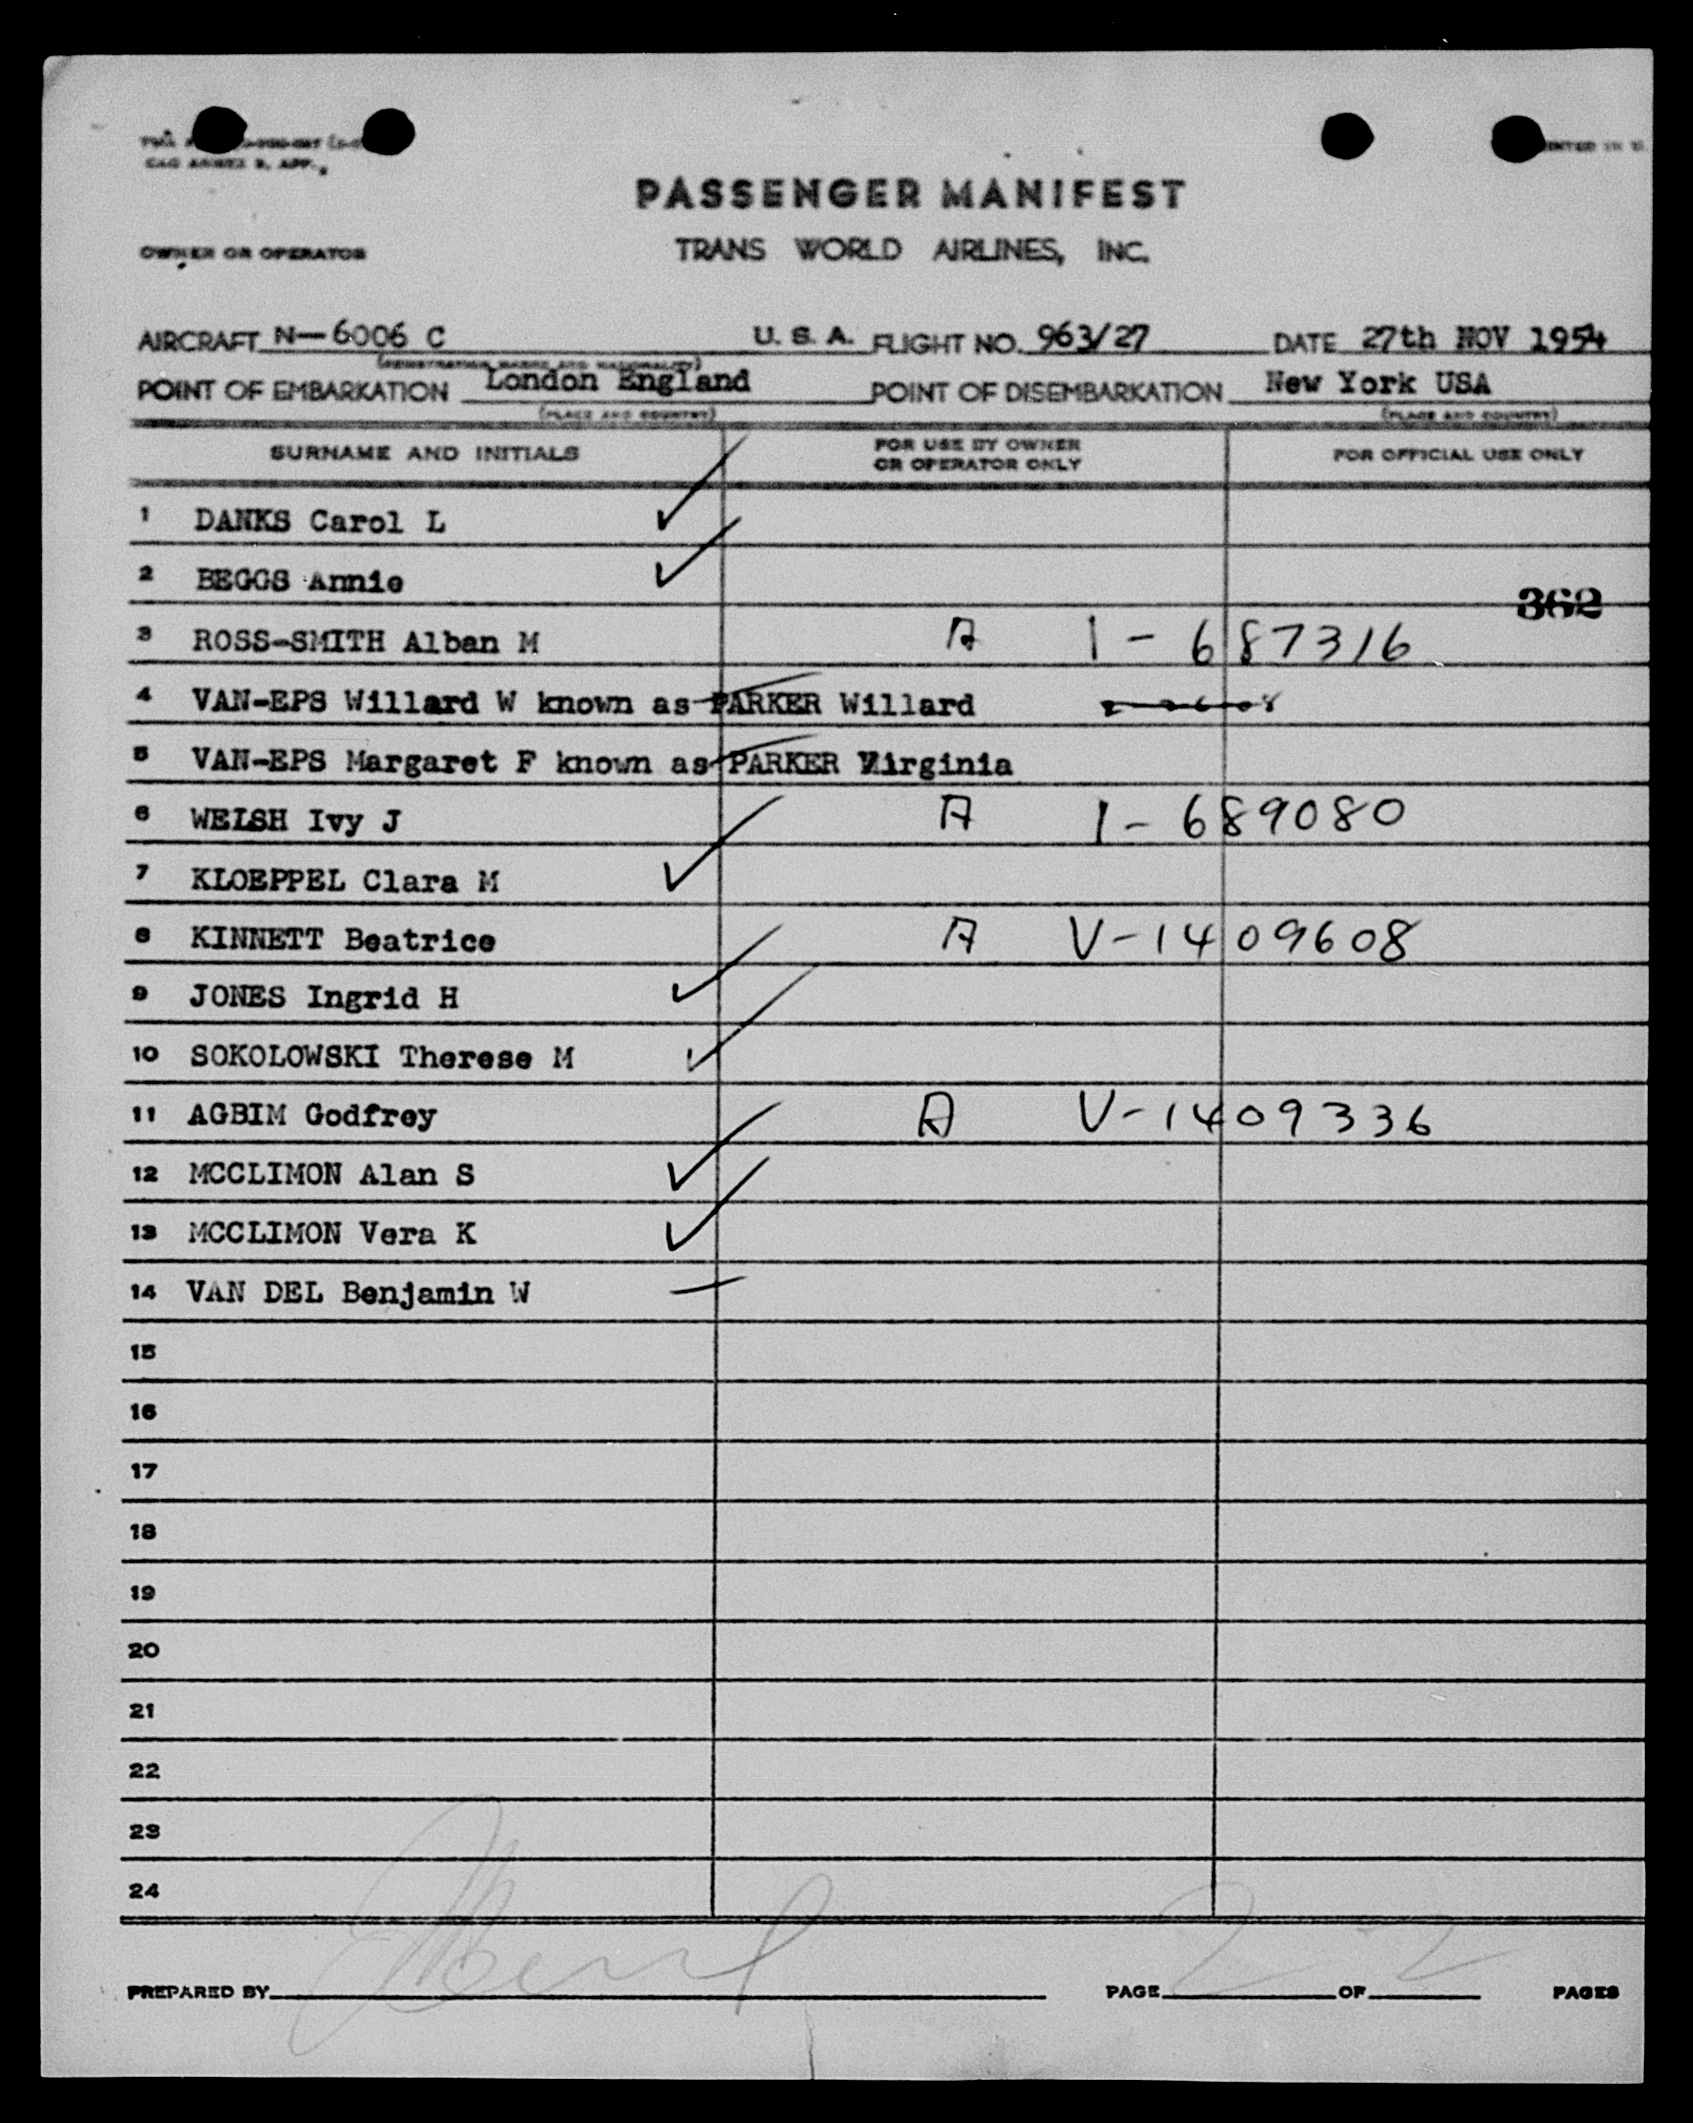 PASSENGER MANIFEST
TRANS WORLD AIRLINES, INC.
OWNER OR OPERATOR
AIRCRAFT N-6006 C U. S. A. FLIGHT NO. 963/27 DATE 27th NOV 1954
(REGISTRATION MARKS AND NATIONALITY)
POINT OF EMBARKATION London England POINT OF DISEMBARKATION New York USA
(PLACE AND COUNTRY) (PLACE AND COUNTRY)
SURNAME AND INITIALS FOR USE BY OWNER OR OPERATOR ONLY FOR OFFICIAL USE ONLY
1 DANKS Carol L
2 BEGGS Annie
362
3 ROSS-SMITH Alban M A 1-687316
4 VAN-EPS Willard W known as PARKER Willard
5 VAN-EPS Margaret F known as PARKER Virginia
6 WELSH Ivy J A 1-689080
7 KLOEPPEL Clara M
8 KINNETT Beatrice A V-1409608
9 JONES Ingrid H
10 SOKOLOWSKI Therese M
11 AGBIM Godfrey A V-1409336
12 MCCLIMON Alan S
13 MCCLIMON Vera K
14 VAN DEL Benjamin W
15
16
17
18
19
20
21
22
23
24
PREPARED BY PAGE 2 OF 2 PAGES